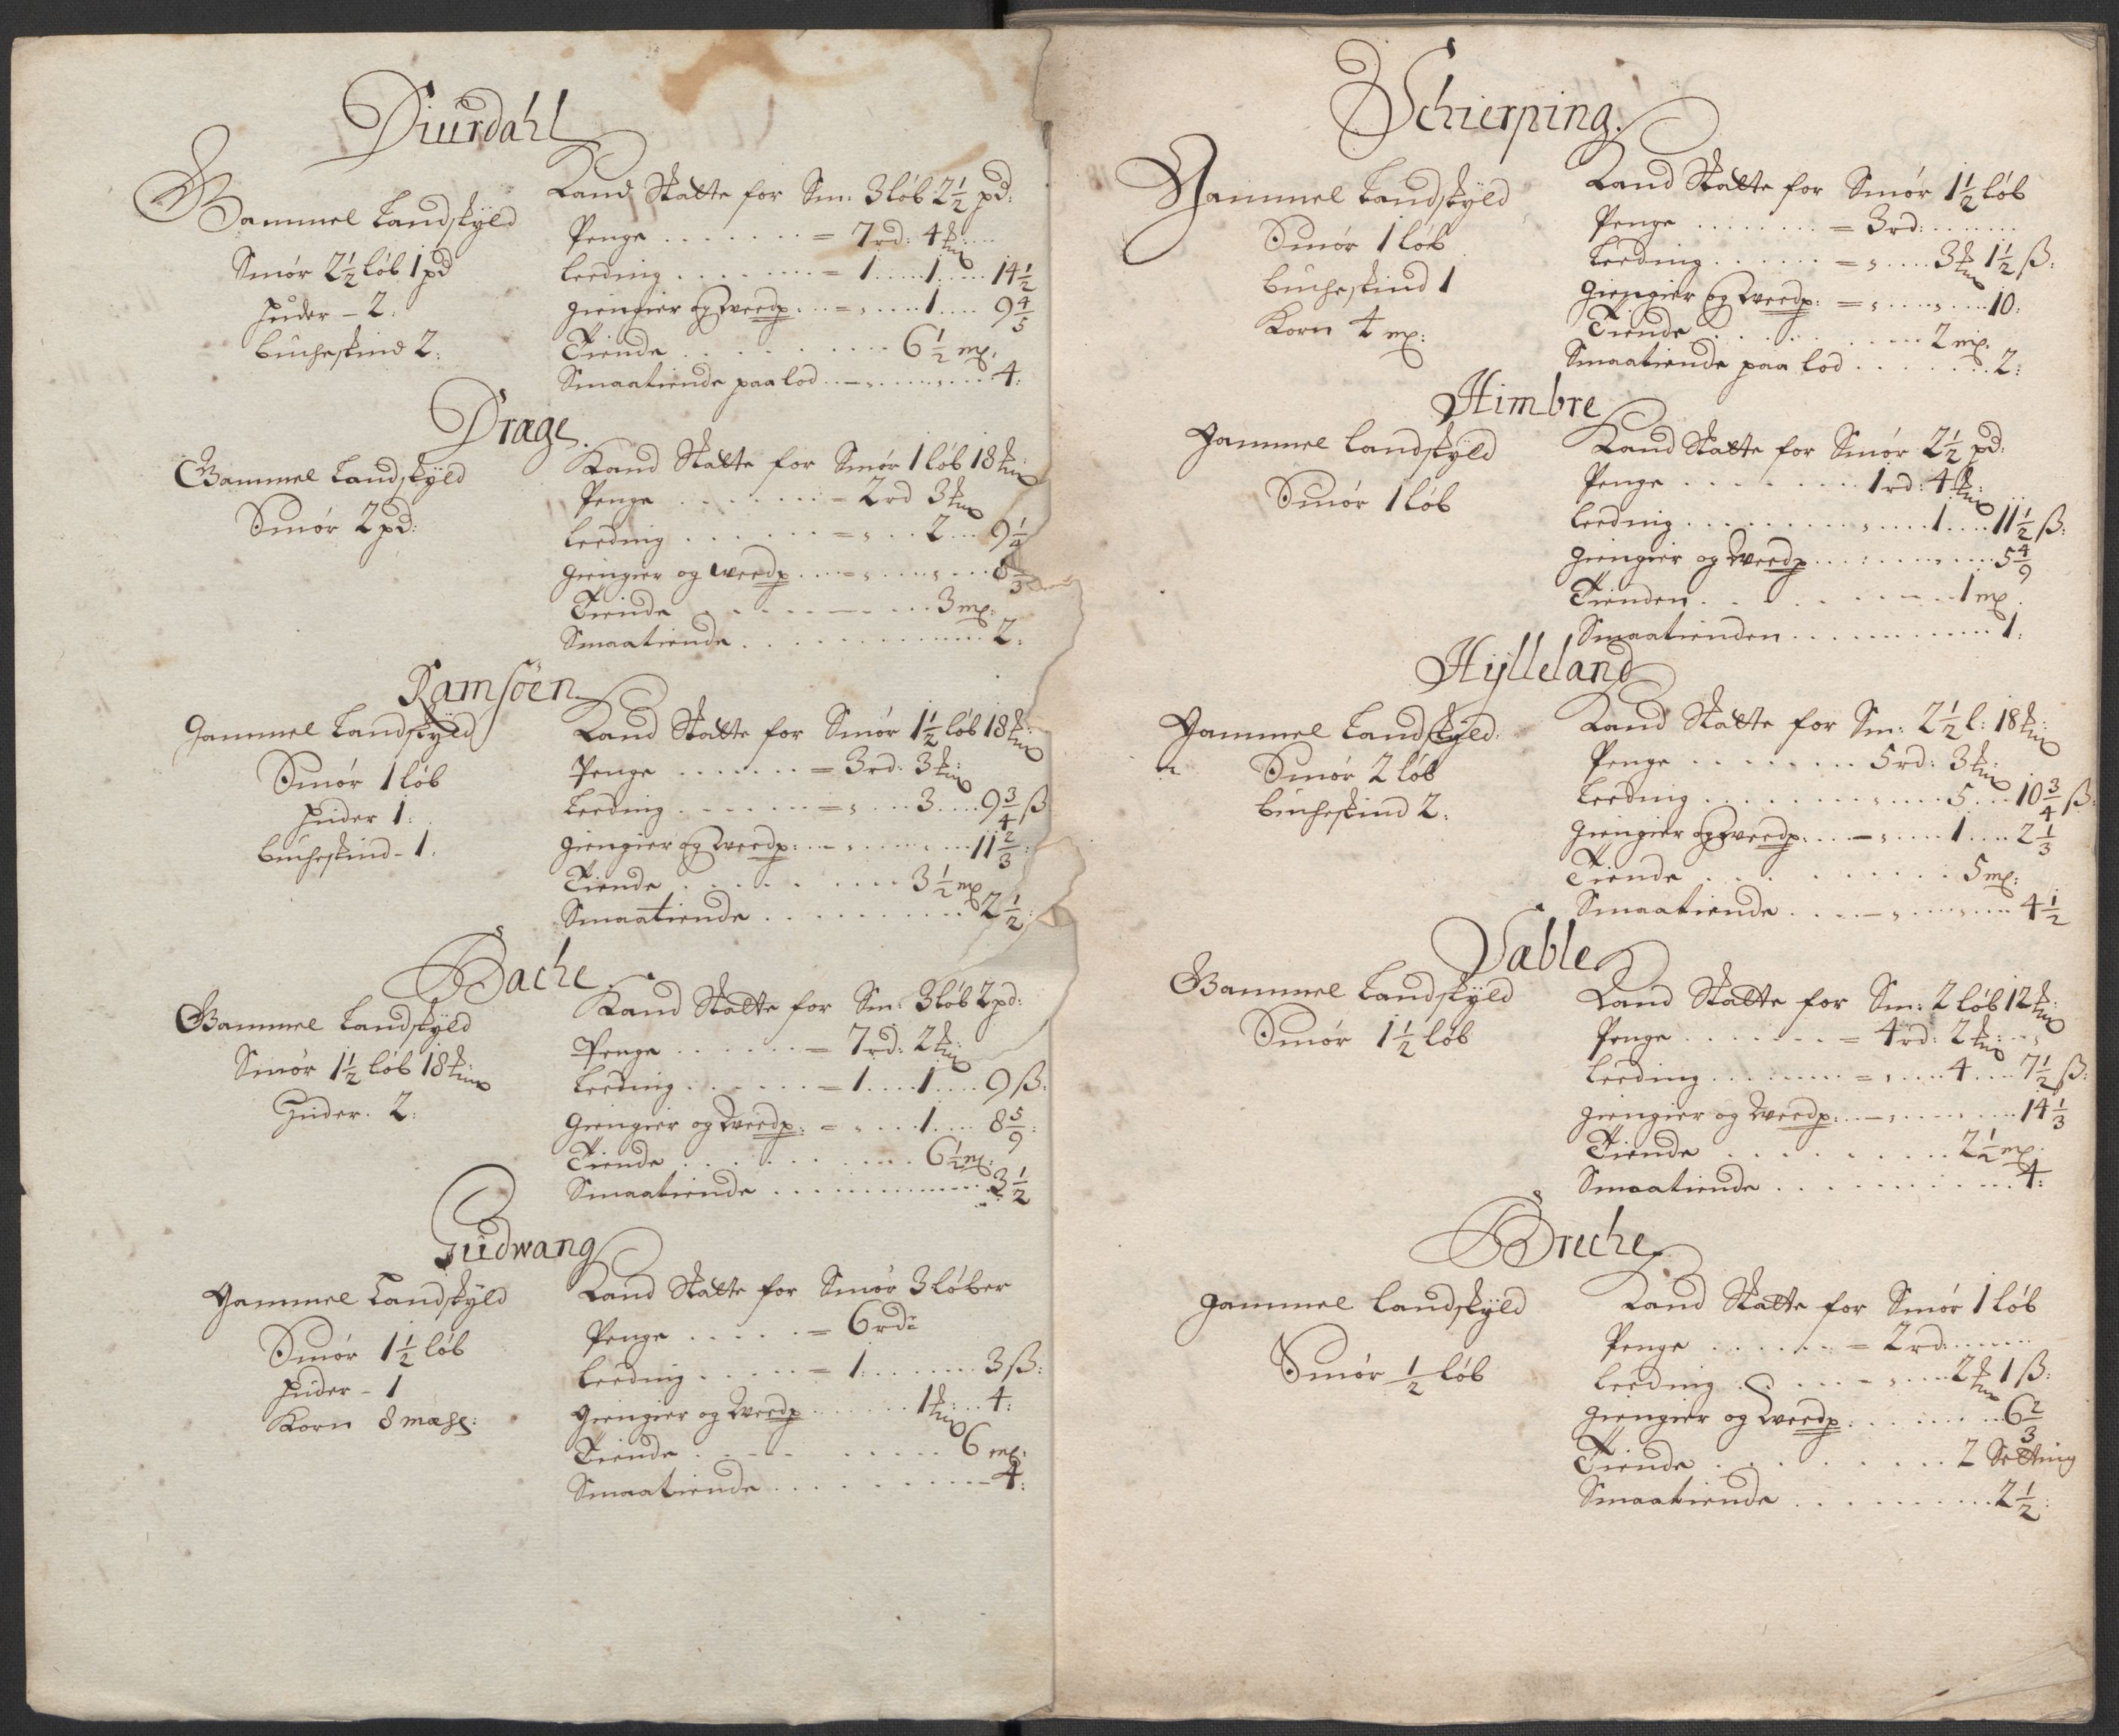 Diurdahl
Gammel Landskyld
Smør 2 1/2 løb 1 pd
Huder - 2:
bucheskind 2:
Land Skatte for Sm: 3 løb 2 1/2 pd:
Penge . . . . . . . = 7 rd: 4
Leeding . . . . . . . = 1 . . . . 1 . . . . 14 1/2
giengier og Weedp: . . = „ . . . . 1 . . . . 9 4/5
Tiende . . . . . . . . 6 1/2 mp:
Smaatiende paa lod . . – „ . . . . „ . . . . 4:
Drage.
Gammel Landskyld
Smør 2 pd:
Land Skatte for Smør 1 løb 18
Penge . . . . . . . – 2 rd 3
Leeding . . . . . . = „ . . 2 . . . 9 1/4
giengier og weedp . . . = „ . . . . „ . . . 8
Tiende . . . . . . . . . 3 mp:
Smaatiende . . . . . . . . . . 2:
Ramsøen
Gammel Landskyld
Smør 1 løb
Huder 1:
buchskind - 1.
Land Skatte for Smør 1 1/2 løb 18
Penge . . . . . . = 3 rd: 3
Leeding . . . . . . . = „ . . . 3 . . . . 9 3/4 ß
giengier og Weedp: . . – „ . . . . „ . . . 11 2/3:
Tiende . . . . . . . . . 3 1/2 mp
Smaatiende . . . . . . . . . . 2 1/2:
Bache
Gammel Landskyld
Smør 1 1/2 løb 18
Huder. 2:
Land Skatte for Sm: 3 løb 2 pd:
Penge . . . . . . = 7 rd: 2
Leeding . . . . . . = 1 . . . . 1 . . . . 9 ß:
Giengier og Weedp: = „ . . . 1 . . . . 8 5/9:
Tiende . . . . . . . . . . 6 1/2 mp:
Smaatiende . . . . . . . . . . . 3 1/2
Gudwang
Gammel Landskyld
Smør 1 1/2 løb
Huder - 1
Korn 8
Land Skatte for Smør 3 løber
Penge . . . . . = 6 rd:
Leeding . . . . . = 1 . . . . . . . 3 ß:
Giengier og Weedp . . . . . . 1 . . . 4:
Tiende . . . . . . . . . . 6 mp:
Smaatiende . . . . . . . . . . 4:
Schierping.
Gammel Landskyld
Smør 1 løb
buchskind 1
Korn 4 mp:
Land Skatte for Smør 1 1/2 løb
Penge . . . . . . . . = 3 rd: . . . . . .
Leeding . . . . . . = „ . . . . 3 1 1/2 ß:
Giengier og Weedp: = „ . . . . „ . . . 10:
Tiende . . . . . . . . . . 2 mp.
Smaatiende paa lod . . . . . . . 2:
Himbre
Gammel Landskyld
Smør 1 løb
Land Skatte for Smør 2 1/2 pd:
Penge . . . . . . . . 1 rd: 4
Leeding . . . . . . . . . „ . . . . 1 . . . . 11 1/2 ß:
giengier og Weedp . . . . . . . . . . 5 4/9
Tienden . . . . . . . . . . 1 mp.
Smaatienden . . . . . . . . . . . 1:
Hylleland
Gammel Landskyld.
Smør 2 løb
buchskind 2:
Land Skatte for Sm: 2 1/2 l: 18
Penge . . . . . . . . 5 rd: 3
Leeding . . . . . . . . . „ . . . . 5 . . . 10 3/4 ß:
giengier og Weedp: . . – „ . . . . 1 . . . . 2 1/3
Tiende . . . . . . . . . . 5 mp:
Smaatiende . . . . – „ . . . . „ . . . 4 1/2
Sæble
Gammel Landskyld
Smør 1 1/2 løb
Land Skatte for Sm: 2 løb 12
Penge . . . . . . . = 4 rd: 2
Leeding . . . . . . . = „ . . . . 4 . . . . 7 1/2 ß:
giengier og Weedp: . . – „ . . . . „ . . . 14 1/3
Tiende . . . . . . . . . 2 1/2 mp.
Smaatiende . . . . . . . . . . . 4:
Breche
Gammel Landskyld
Smør 1/2 løb
Land Skatte for Smør 1 løb
Penge . . . . . . = 2 rd: . . . . .
Leeding . . . . . . – „ . . . . 2 1 ß:
giengier og Weedp: . . . . . . . 6 2/3
Tiende . . . . . . . . . 2 Setting
Smaatiende . . . . . . . . . . 2 1/2: